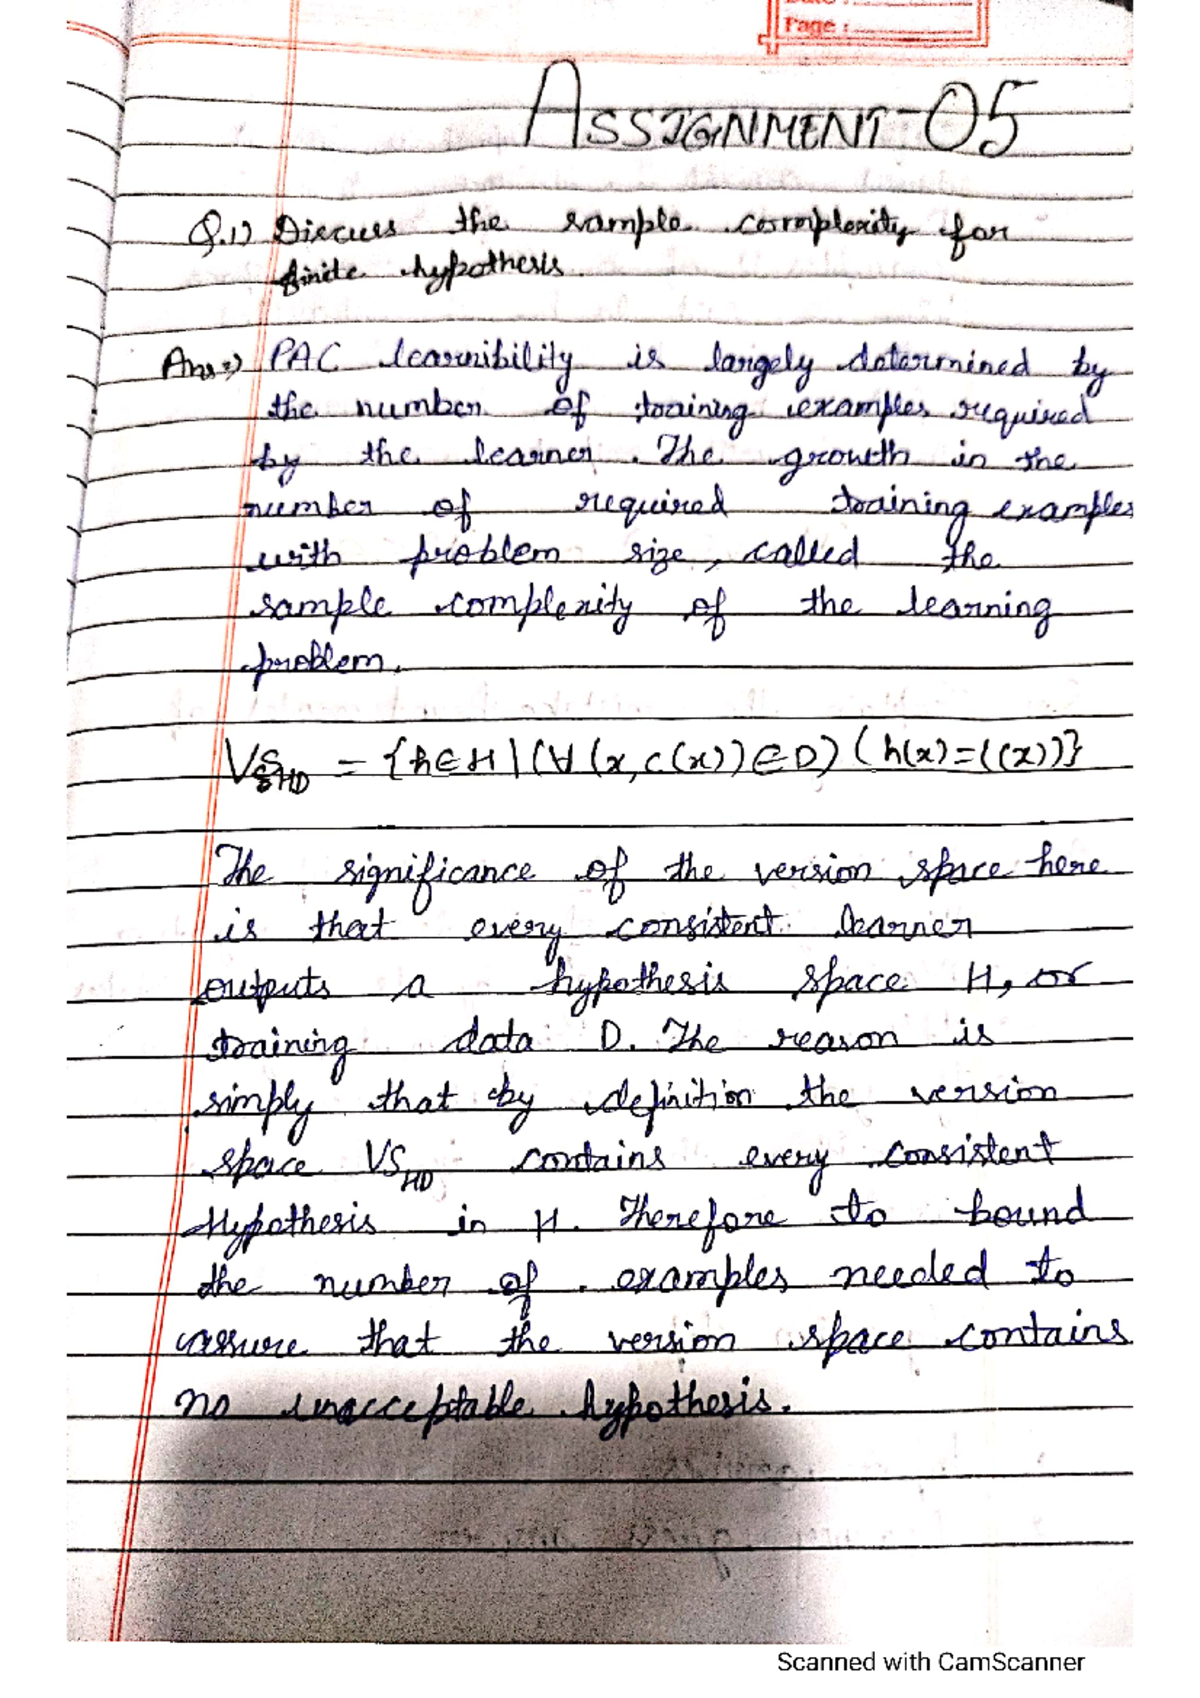 Page :
ASSIGNMENT-05
Q.1) Discuss the sample complexity for
finite hypothesis
Ans⇒) PAC learnibility is largely determined by
the number of training examples required
by the learner. The growth in the
number of required training examples
with problem size, called the
sample complexity of the learning
problem.
VS HD = {h∈H|(∀(x,c(x))∈D)(h(x)=((x))}
The significance of the version space here
is that every consistent learner
outputs a hypothesis space H, or
training data D. The reason is
simply that by definition the version
space VS HD contains every consistent
Hypothesis in H. Therefore to bound
the number of examples needed to
assure that the version space contains
no unacceptable hypothesis.
Scanned with CamScanner